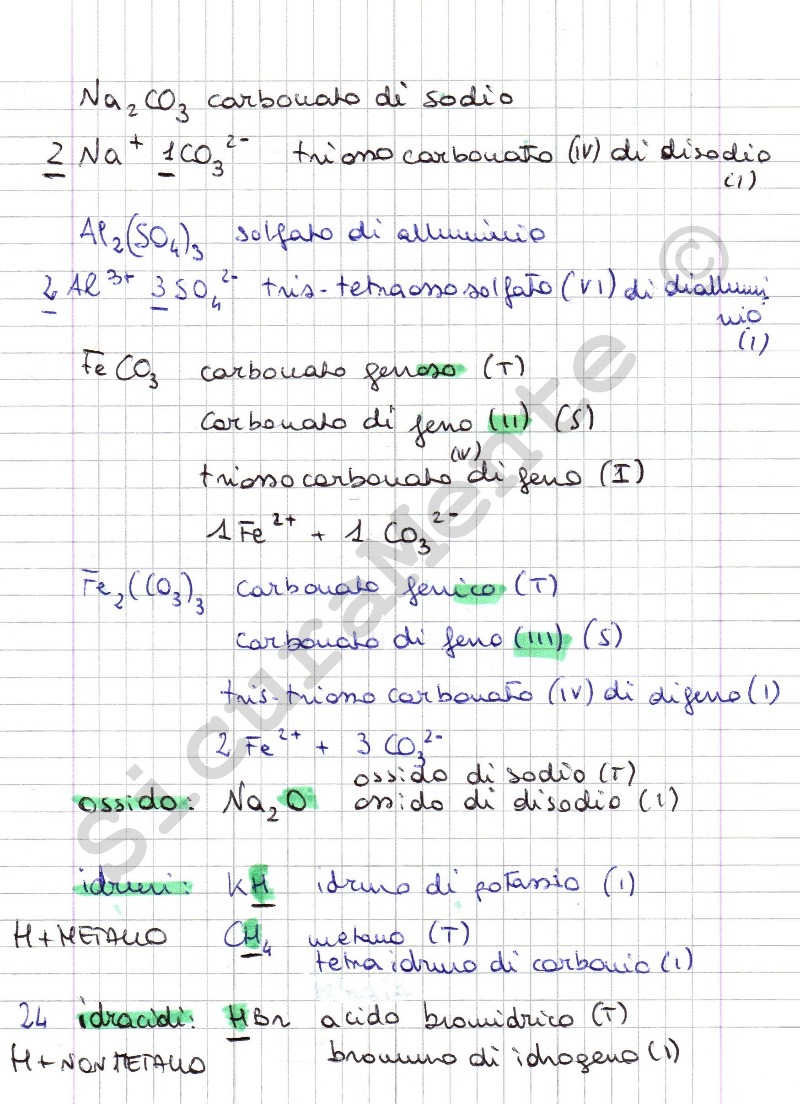 Na₂CO₃ carbonato di sodio
2 Na⁺ 1CO₃²⁻ triosso carbonato (IV) di disodio
(I)
Al₂(SO₄)₃ solfato di alluminio
2 Al³⁺ 3 SO₄²⁻ tris-tetraosso solfato (VI) di diallumi
nio
(I)
FeCO₃ carbonato ferroso (T)
carbonato di ferro (II) (S)
(IV)
triosso carbonato di ferro (I)
1 Fe²⁺ + 1 CO₃²⁻
Fe₂(CO₃)₃ carbonato ferrico (T)
carbonato di ferro (III) (S)
tris-triosso carbonato (IV) di diferro (I)
2 Fe²⁺ + 3 CO₃²⁻
ossido di sodio (T)
ossido: Na₂O ossido di disodio (I)
idruri: KH idruro di potassio (I)
H+METALLO CH₄ metano (T)
tetraidruro di carbonio (I)
24 idracidi: HBr acido bromidrico (T)
H+NON METALLO bromuro di idrogeno (I)
SicuraMente ©